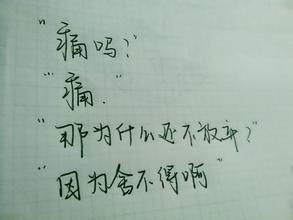 "痛吗?"
"痛."
"那为什么还不放弃?"
"因为舍不得啊"